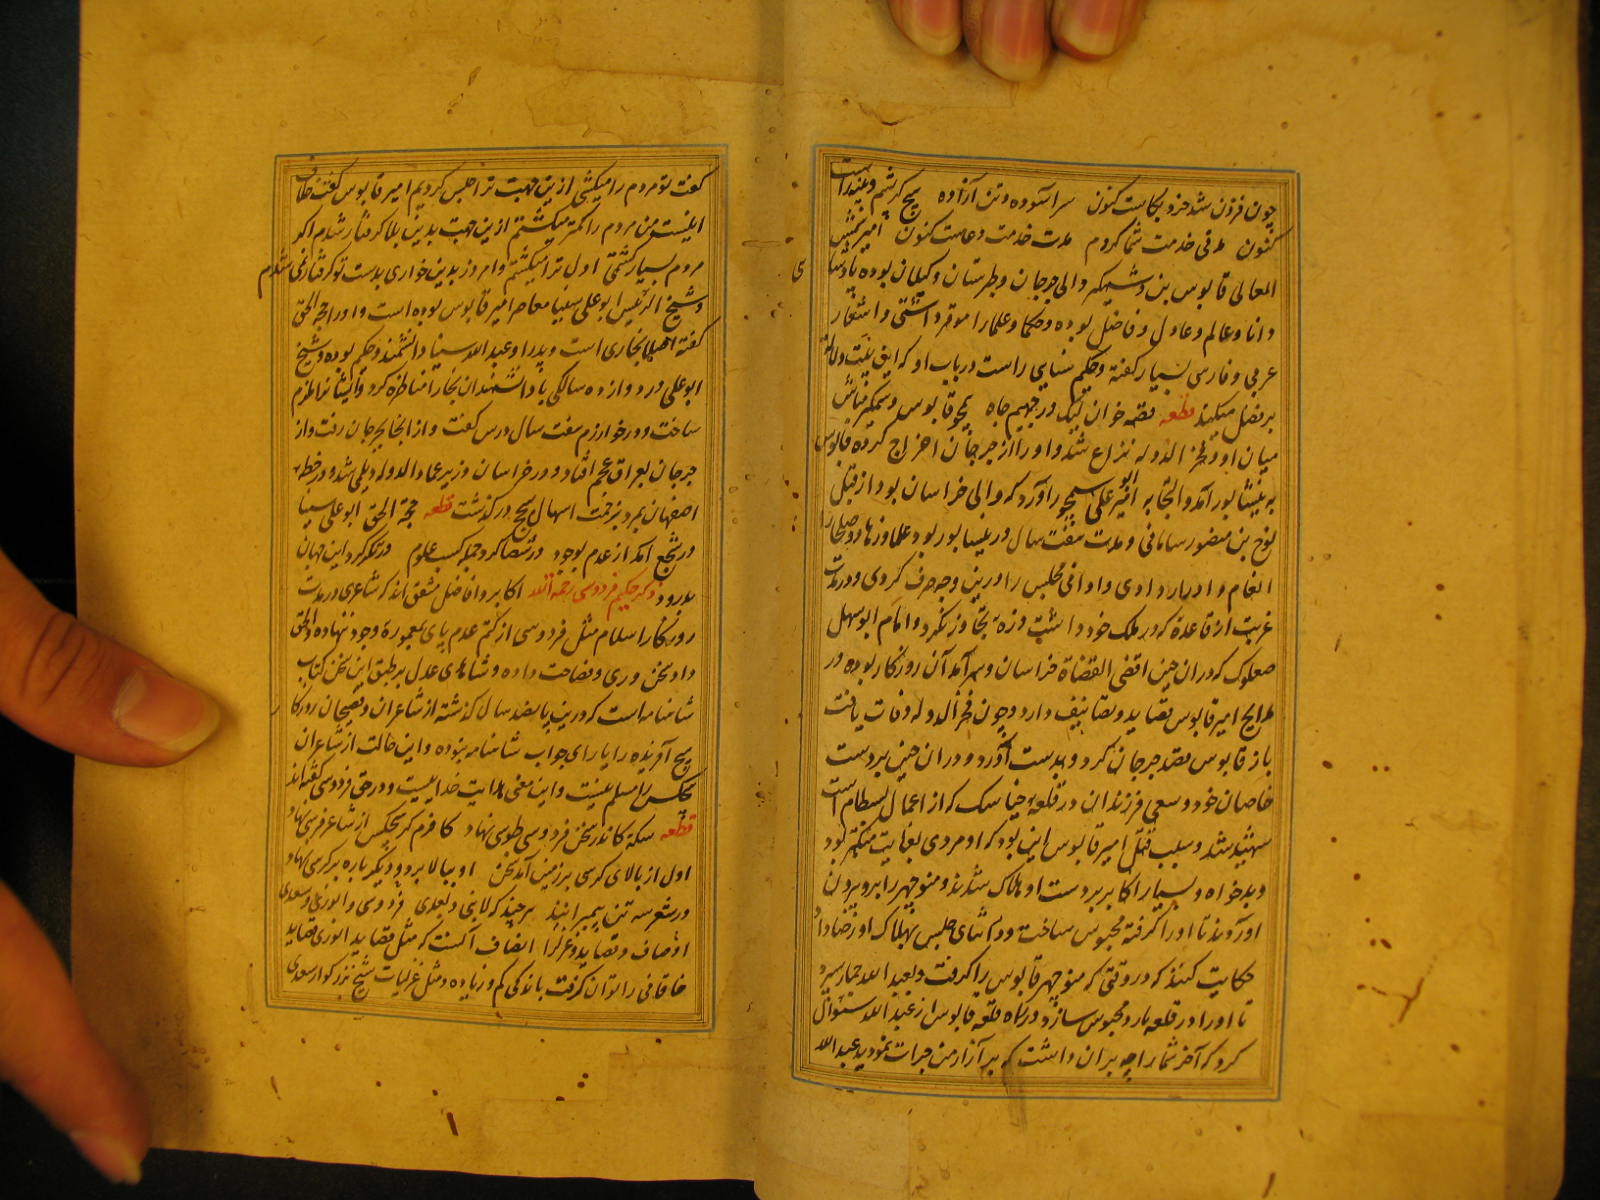 چون فزون شد جزو بکاست کنون سر آسوده و تن آزاده هیچ کر شم و غینه راست
کنون مدتی خدمت شما کردم مدت خدمت دعاست کنون امیر شمس
المعالی قابوس بن وشمکیر والی جرجان و طبرستان و کیلان بوده پادشا
ی
دانا و عالم و عادل و فاضل بوده و حکما و علما را موقر داشتی و اشعار
عربی و فارسی بسیار کفته و حکیم سنایی راست در باب او که این بیت دلالت
بر فضل میکند قطعه فقه خوان لیک در جهنم جاه همچو قابوس وشمکیر مباش
میان او و فخر الدوله نزاع شد و او را از جرجان اخراج کرده قابوس
به نیشابور آمد و التجا به امیر علی سمجور آورد که والی خراسان بود از قبل
نوح بن منصور سامانی و مدت هفت سال در نیشابور بود علما و زهاد و صلحا را
انعام و ادرار دادی و اوانی مجلس را درین وجه صرف کردی و در مدت
غربت از قاعده که در ملک خود داشت ذره تجاوز نکرد و امام ابو سهل
صعلوک که در ان حین اقضی القضاة خراسان و سرآمد آن روزکار بوده در
مدایح امیر قابوس قصاید و تصانیف دارد و چون فخر الدوله وفات یافت
باز قابوس قصد جرجان کرد و بدست آورد و در ان حین بر دست
خاصان خود و سعی فرزندان در قلعه جناسک که از اعمال بسطام است
شهید شد و سبب قتل امیر قابوس این بود که او مردی بغایت متکبر بود
و بدخواه و بسیار اکابر بر دست او هلاک شدند و منوچهر را برو بیرون
آوردند تا او را کرفته محبوس ساخت و در اثنای حبس بهلاک او رضا داد
حکایت کنند که در وقتی که منوچهر قابوس را کرفت و بعبد الله جمازه سپرد
تا او را در قلعه بارد محبوس سازد در راه قلعه قابوس از عبد الله سئوال
کرد که آخر شما را چه بران داشت که بر آزار من جرات نمودید عبد الله
کفت تو مردم را میکشی ازین جهت ترا حبس کردیم امیر قابوس کفت خلاف
اینست من مردم را کمتر میکشتم ازین جهت بدین بلا کرفتار شدم اکر
مردم بسیار کشتمی اول ترا میکشتم و امروز بدین خواری بدست تو کرفتار نمی شدم
و شیخ الرئیس ابو علی سینا معاصر امیر قابوس بوده است و او را حجة الحق
کفته اصلا بخاری است و پدر او عبد الله سینا دانشمند و حکیم بوده و شیخ
ابو علی در دوازده سالکی با دانشمندان بخارا مناظره کرد و ایشانرا ملزم
ساخت و در خوارزم هفت سال درس کفت و از انجا بجرجان رفت و از
جرجان بعراق عجم افتاد و در خراسان وزیر عماد الدوله دیلمی شد و در خطهٔ
اصفهان بمرد بزحمت اسهال سحج در کذشت قطعه حجة الحق ابو علی سینا
در شجع امد از عدم بوجود در شصا کرد جمله کسب علوم در تکز کرد این جهان
بدرود ذکر حکیم فردوسی رحمة الله اکابر و افاضل متفق اند که شاعری در مدت
روزکار اسلام مثل فردوسی از کتم عدم پای بمعمورهٔ وجود ننهاده و الحق
داد سخن وری و فصاحت داده و شاهدی عدل بر طبق این سخن کتاب
شاهنامه است که درین پانصد سال کذشته از شاعران و فصیحان روزکار
هیچ آفریده را یارای جواب شاهنامه نبوده و این حالت از شاعران
هیچکس را مسلم نیست و این معنی هدایت خداییست و در حق فردوسی کفته اند
قطعه سکهٔ کاندر سخن فردوسی طوسی نهاد کافرم کر هیچکس از شاعر فرسی نهاد
اول از بالای کرسی بر زمین آمد سخن او ببالا برد و دیکر باره بر کرسی نهاد
در شعر سه تن پیمبرانند هر چند که لانبی بعدی فردوسی و انوری و سعدی
اوصاف و قصاید و غزل را انصاف آنست که مثل قصاید انوری قصاید
خاقانی را توان کرفت باندکی کم و زیاده و مثل غزلیات شیخ بزرکوار سعدی